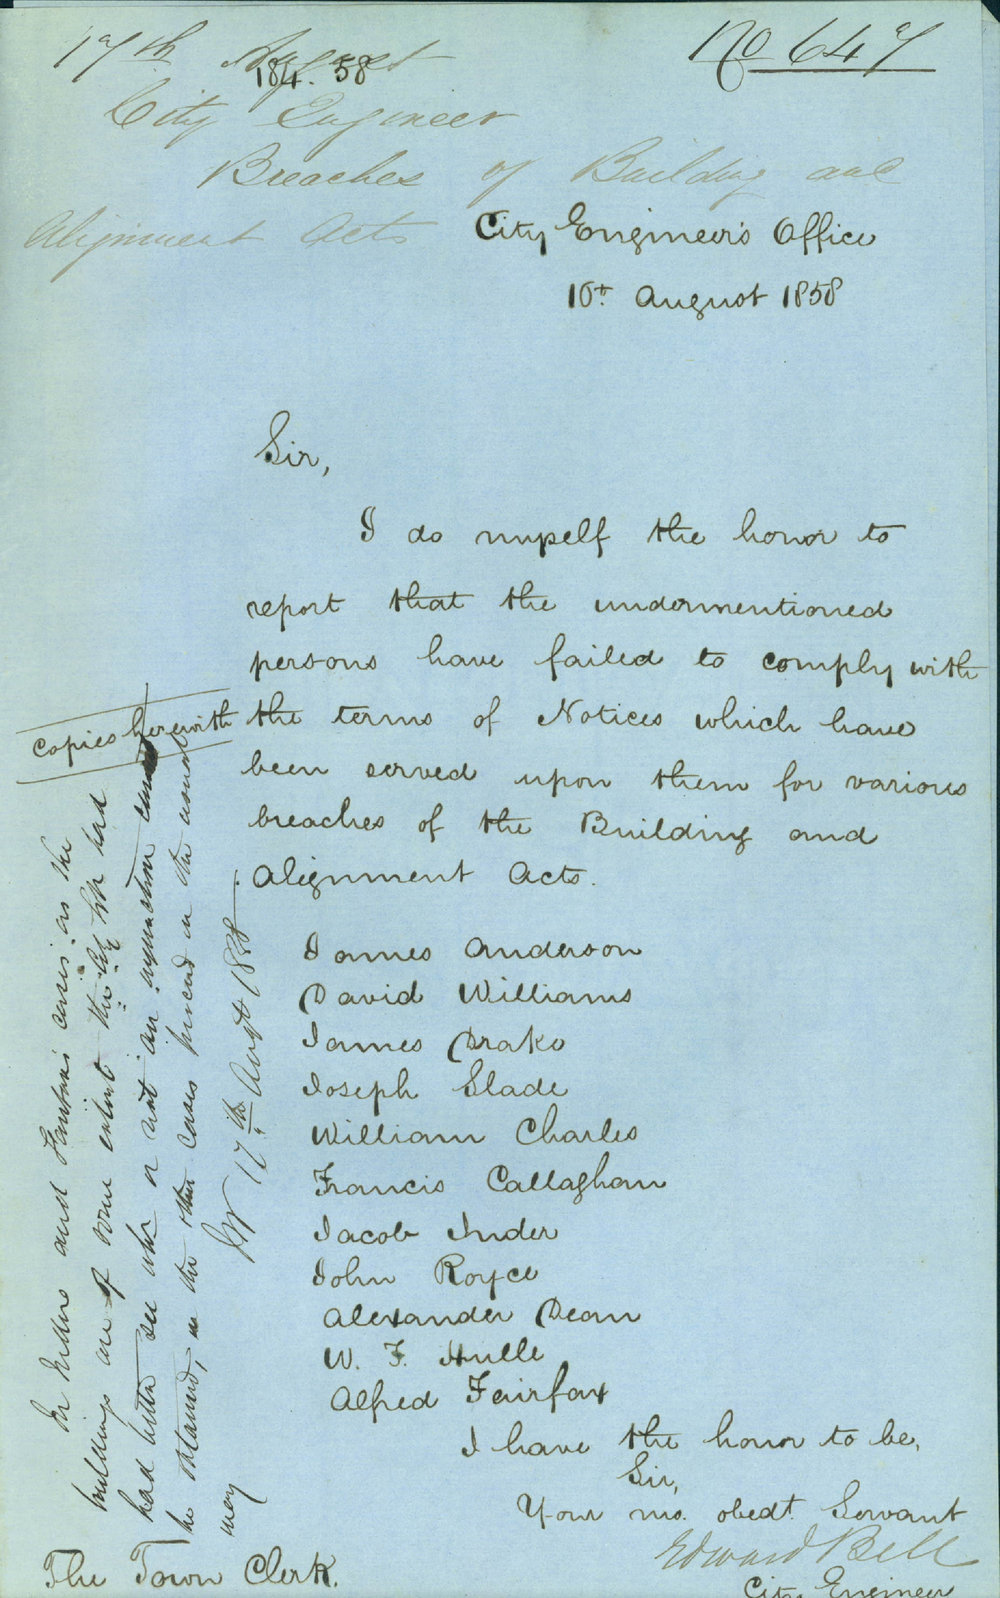 17th August
184. 58
No 647
City Engineer
Breaches of Building and
Alignment Acts
City Engineer's Office
10th August 1858
Sir,
I do myself the honor to
report that the undermentioned
persons have failed to comply with
the terms of Notices which have
been served upon them for various
breaches of the Building and
Alignment Acts.
James Anderson
David Williams
James Drake
Joseph Slade
William Charles
Francis Callaghan
Jacob Inder
John Royce
Alexander Dean
W. F. Hulle
Alfred Fairfax
I have the honor to be,
Sir,
Your mo. obedt. Servant
Edward Bell
City Engineer
The Town Clerk.
Copies herewith
In and cases as the
buildings are of some extent the City had
had better see whe or not an injunction can
be obtained, in the other cases proceed in the usual
way
17th Augt 1858.